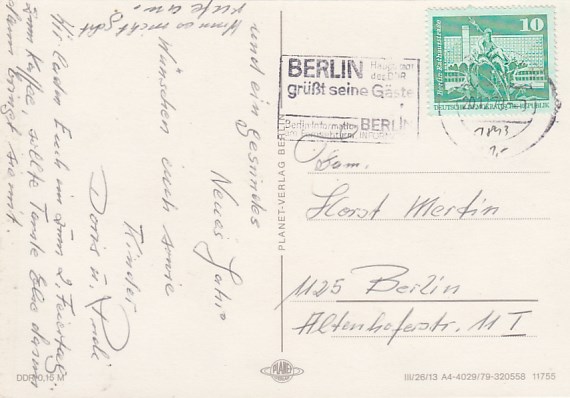 und ein gesundes
Neues Jahr
wünschen euch sowie
Kinder
Doris u. Rudi
Wir laden Euch zum 2 Feiertag
zum Kaffee, sollte Tante Else da sein
dann bringt sie mit.
Wenn es nicht geht
rufe an.
10
Berlin Rathausstraße
DEUTSCHE DEMOKRATISCHE REPUBLIK
BERLIN Hauptstadt
der DDR
grüßt seine Gäste
Berlin-Information BERLIN
am Fernsehturm
1893
1,-
PLANET-VERLAG BERLIN
Fam.
Horst Mertin
1125 Berlin
Altenhoferstr. 11 I
PLANET
DDR 0,15 M
III/26/13 A4-4029/79-320558 11755